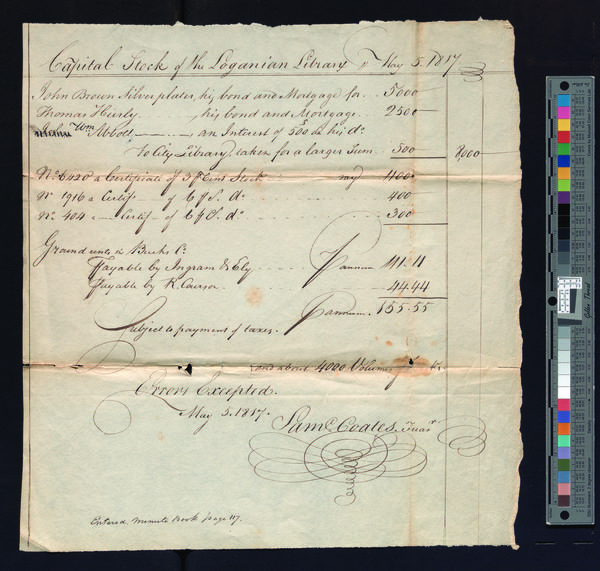 Capital Stock of the Loganian Library May 5. 1817
John Brown Silver plater, his bond and Mortgage for 5000
Thomas Hurly his bond and Mortgage 2500
Wm Abbott an Interest of 500 in his do
to City Library, taken for a larger Sum 500 8000
No 6420 a Certificate of 3 Cent Stock say 1100
No 1916 a Certif of do 400
No 404 a Certif of do 300
Ground rents in Bucks Co.
Payable by Ingram & Ely annum 111.11
Payable by R. Courson 44.44
annum 155.55
Subject to payment of taxes.
and about 4000 Volumes
Errors Excepted.
May 5. 1817.
Saml Coates, Treasr
Entered Minute Book page 117.